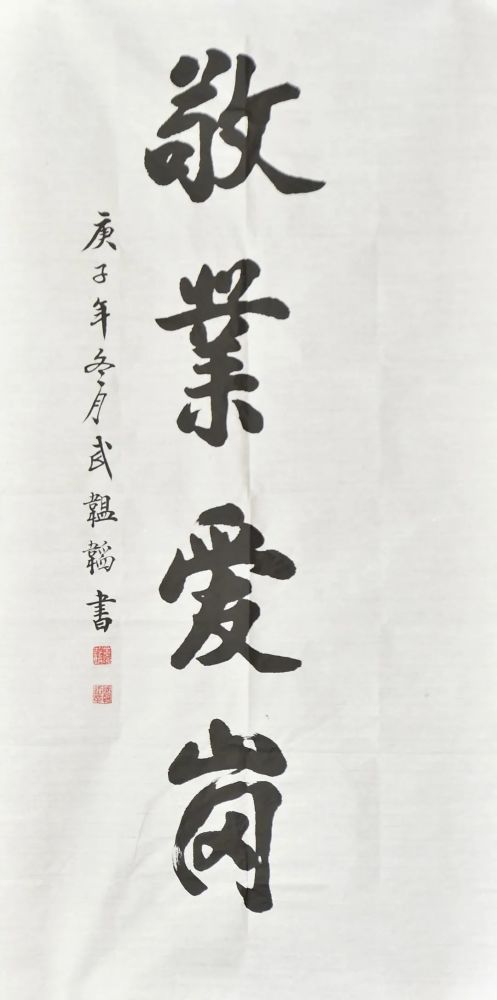 敬業爱岗
庚子年冬月武韫韬書